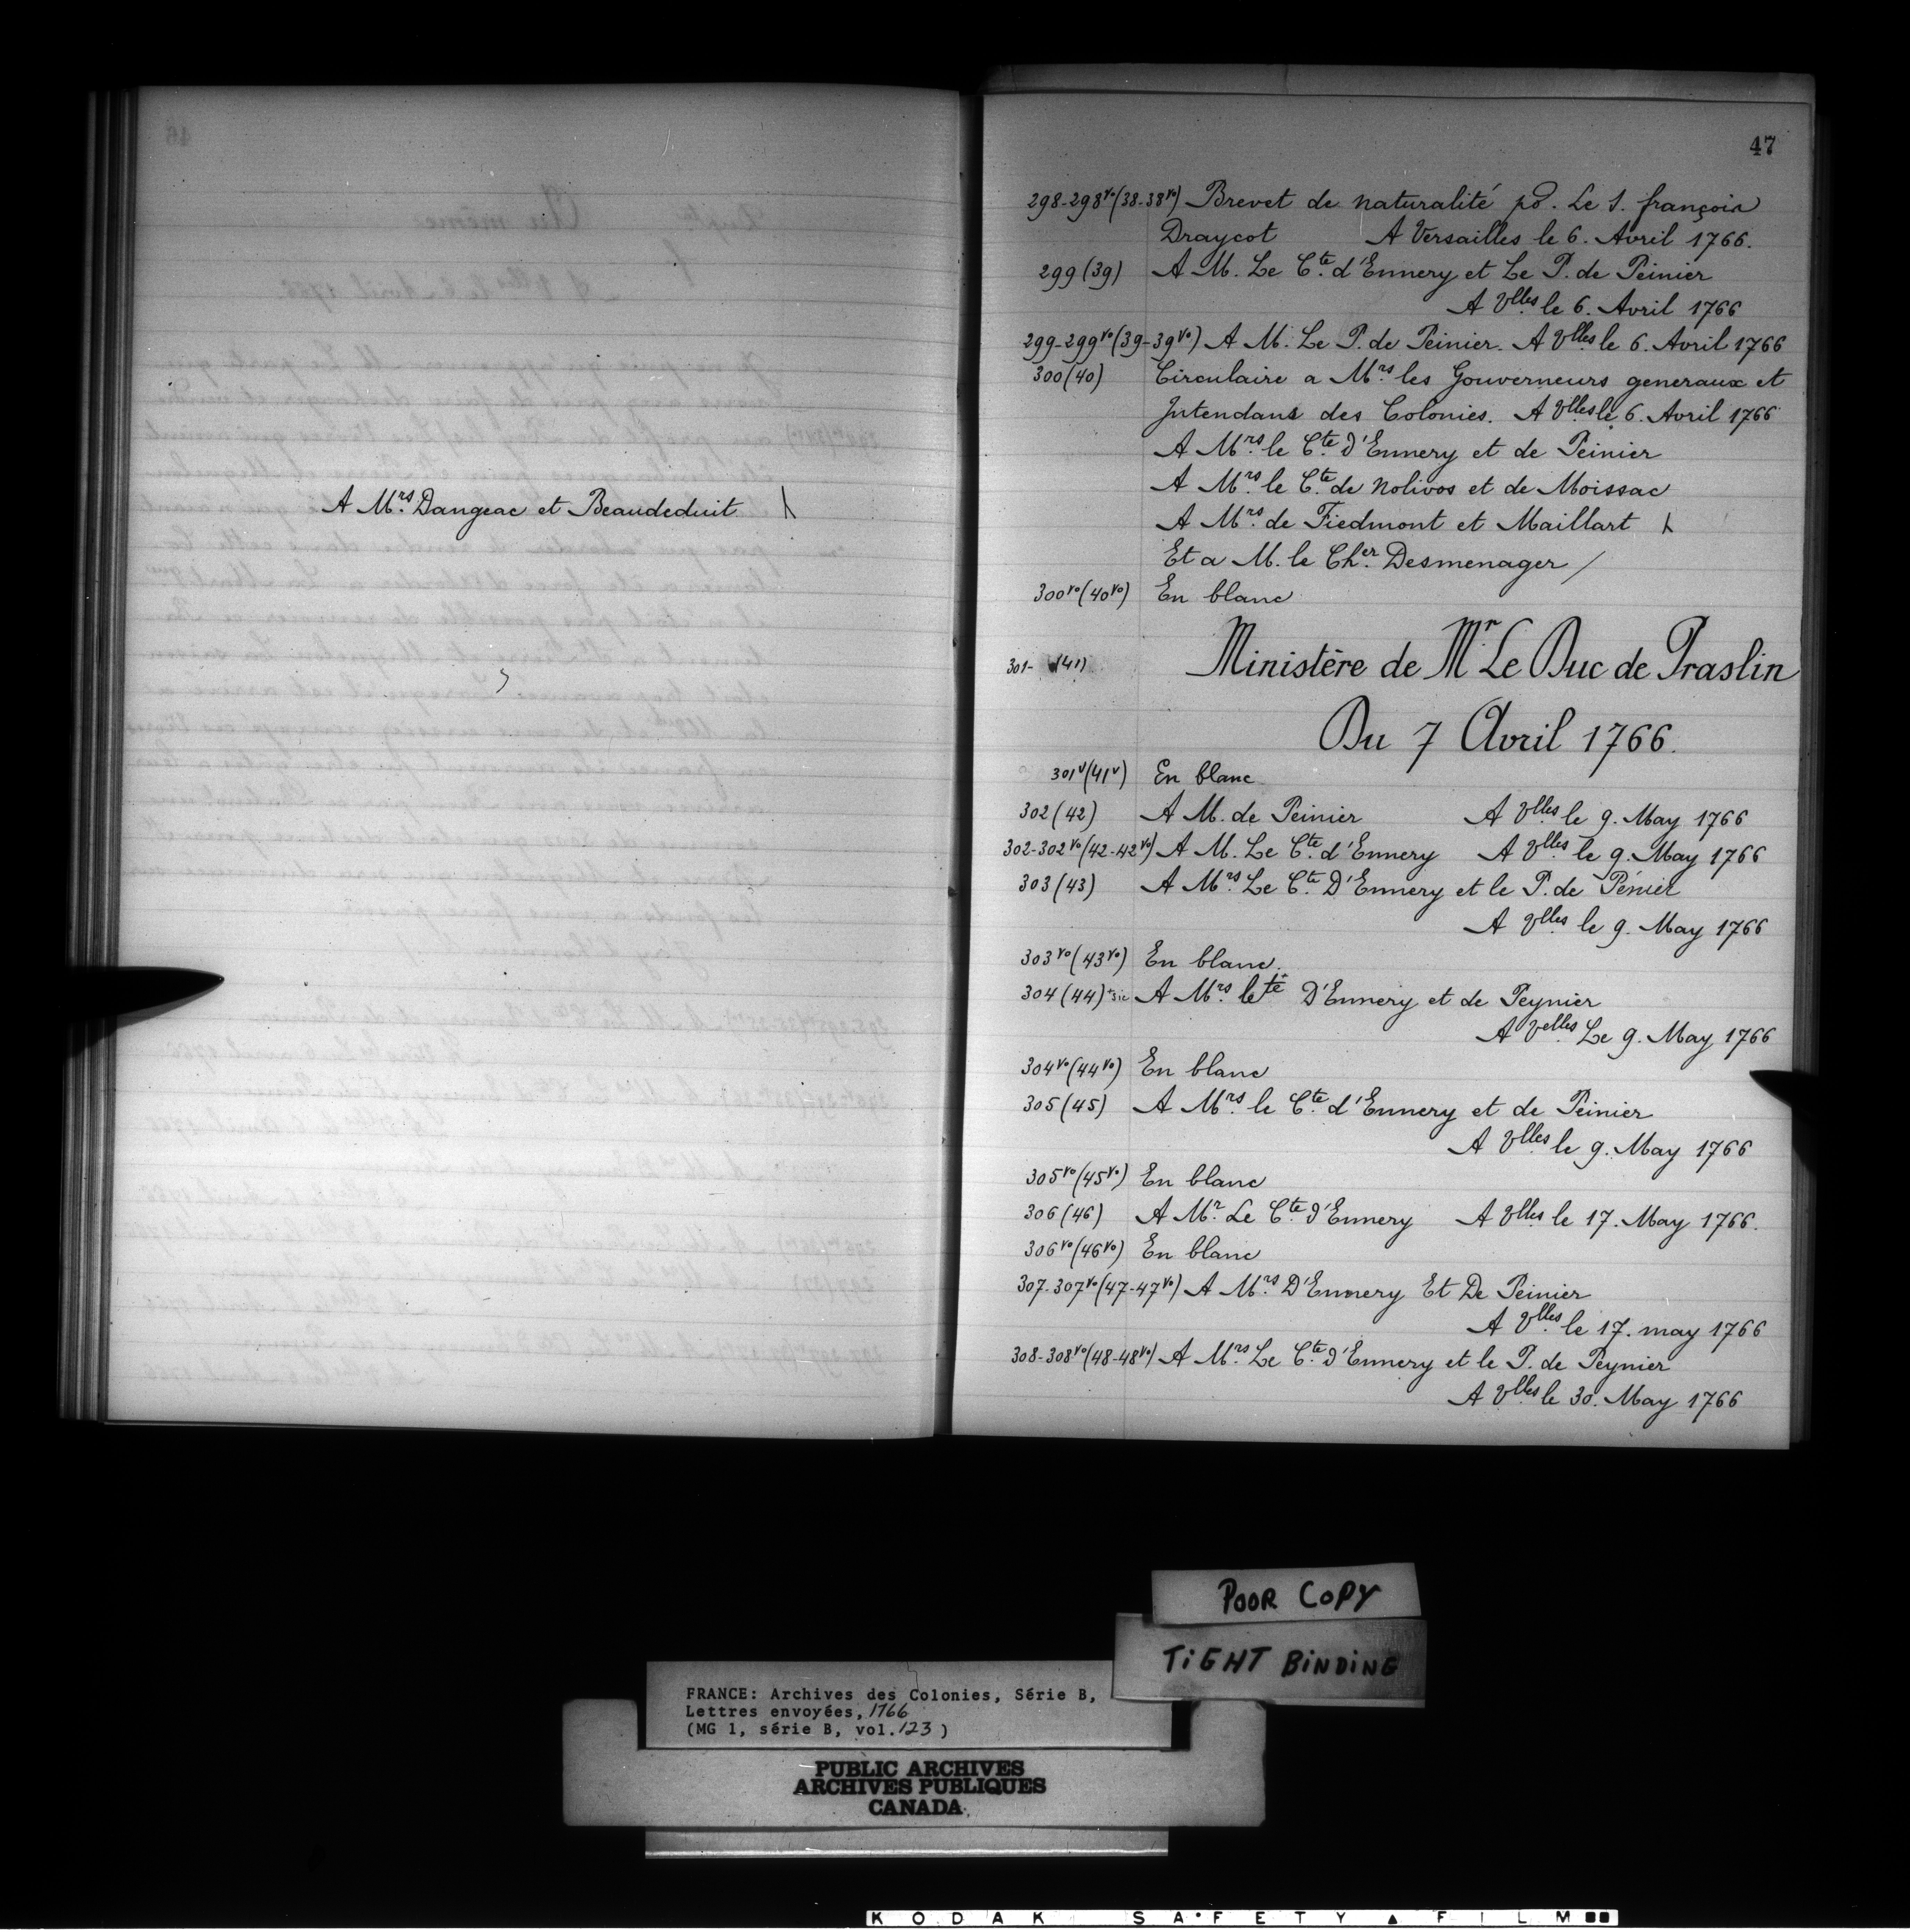 A Mrs. Dangeac et Beaudeduit \
47
298-298vo (38-38vo) Brevet de naturalité po. Le S. françois
Draycot A Versailles le 6. Avril 1766.
299 (39) A M. Le Cte. d'Ennery et Le P. de Peinier
A Vlles. le 6. Avril 1766
299-299vo (39-39vo) A M. Le P. de Peinier. A Vlles. le 6. Avril 1766
300 (40) Circulaire a Mrs. les Gouverneurs generaux et
Intendans des Colonies. A Vlles. le 6. Avril 1766
A Mrs. le Cte. D'Ennery et de Peinier
A Mrs. le Cte. de Nolivos et de Moissac
A Mrs. de Fiedmont et Maillart
Et a M. le Cher. Desmenager /
300vo (40vo) En blanc
301- (41) Ministère de Mr. Le Duc de Praslin
Du 7 Avril 1766.
301v (41v) En blanc
302 (42) A M. de Peinier A Vlles. le 9. May 1766
302-302vo (42-42vo) A M. Le Cte. d'Ennery A Vlles. le 9. May 1766
303 (43) A Mrs. Le Cte. D'Ennery et le P. de Pénier
A Vlles. le 9. May 1766
303vo (43vo) En blanc.
304 (44) +sic A Mrs. lete+ D'Ennery et de Peynier
A Velles. Le 9. May 1766
304vo (44vo) En blanc
305 (45) A Mrs. le Cte. d'Ennery et de Peinier
A Vlles. le 9. May 1766
305vo (45vo) En blanc
306 (46) A Mr. Le Cte. d'Ennery A Vlles. le 17. May 1766.
306vo (46vo) En blanc
307-307vo (47-47vo) A Mrs. D'Ennery Et De Peinier
A Vlles. le 17. may 1766
308-308vo (48-48vo) A Mrs. Le Cte. d'Ennery et le P. de Peynier
A Vlles. le 30. May 1766
POOR COPY
TIGHT BINDING
FRANCE: Archives des Colonies, Série B,
Lettres envoyées, 1766
(MG 1, série B, vol. 123)
PUBLIC ARCHIVES
ARCHIVES PUBLIQUES
CANADA
KODAK SAFETY FILM